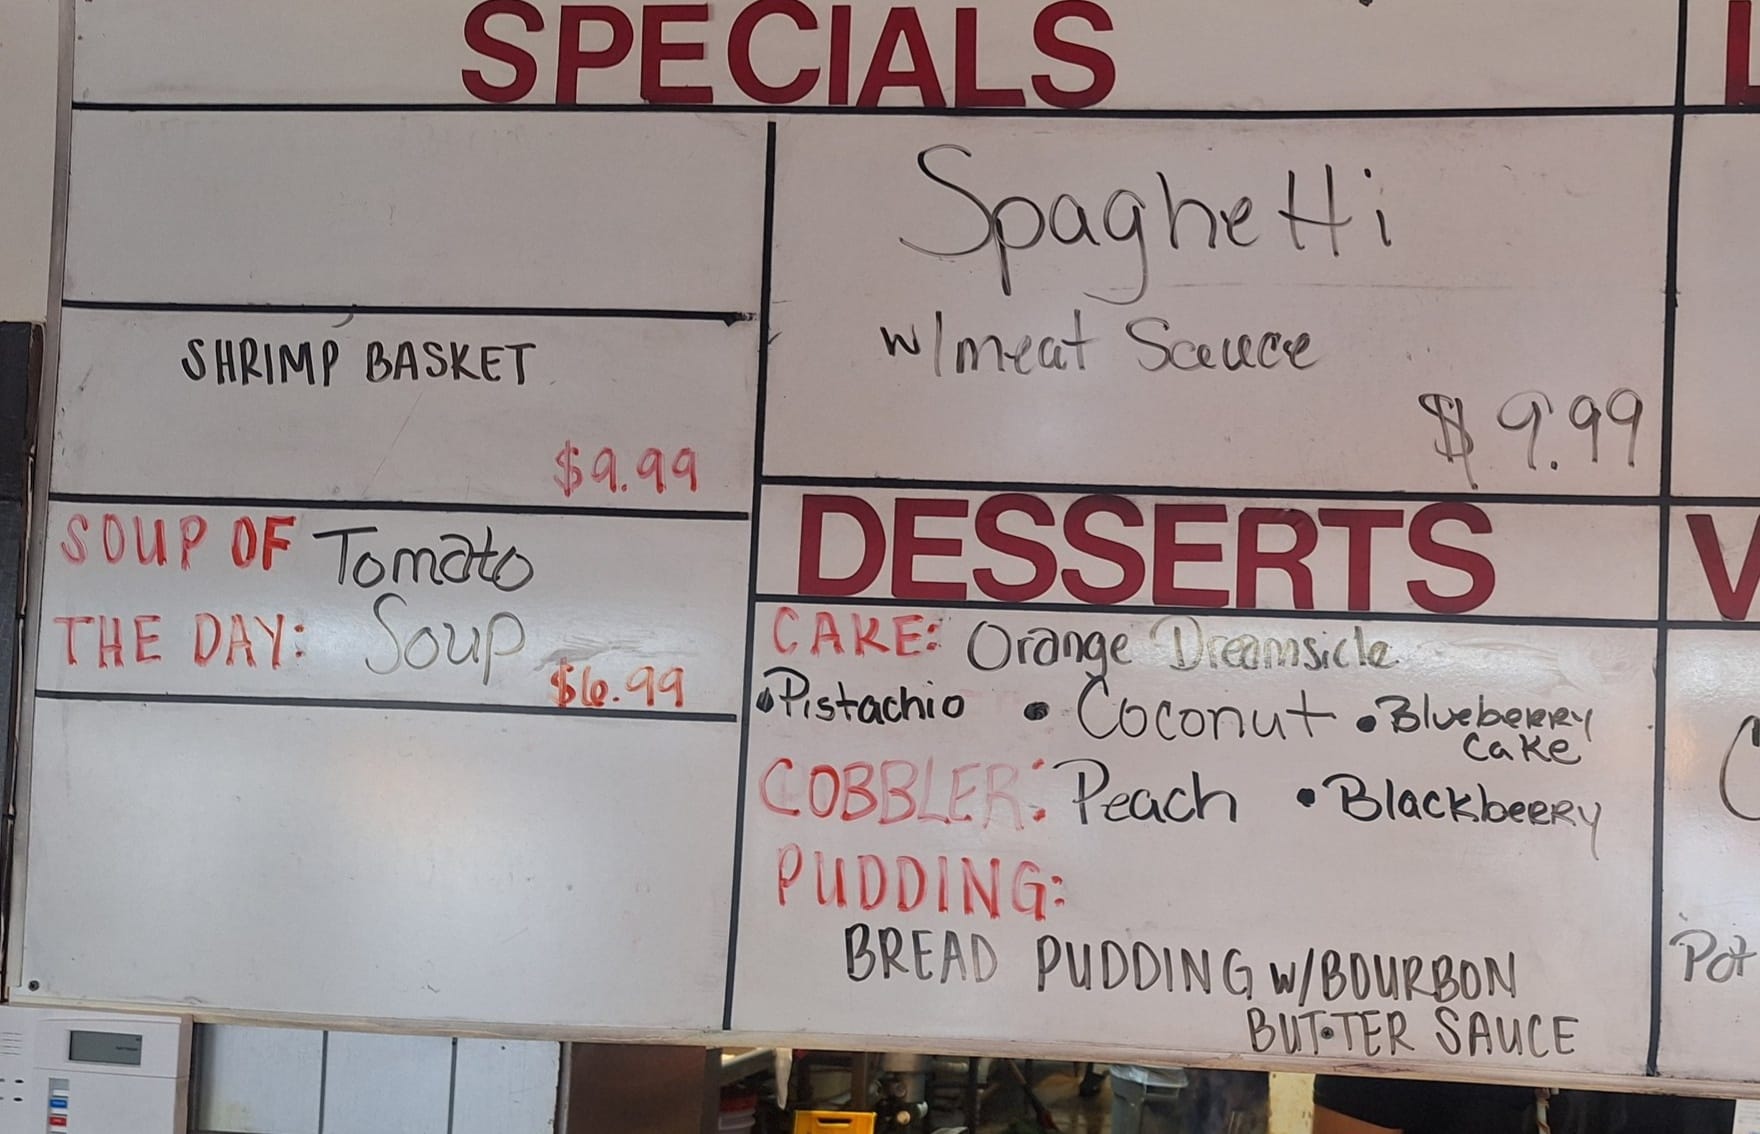 SPECIALS
SHRIMP BASKET
$9.99
SOUP OF Tomato
THE DAY: Soup
$6.99
Spaghetti
w/meat Sauce
$9.99
DESSERTS
CAKE: Orange Dreamsicle
•Pistachio • Coconut •Blueberry
cake
COBBLER: Peach •Blackberry
PUDDING:
BREAD PUDDING w/BOURBON
BUTTER SAUCE
L
V
C
Pot